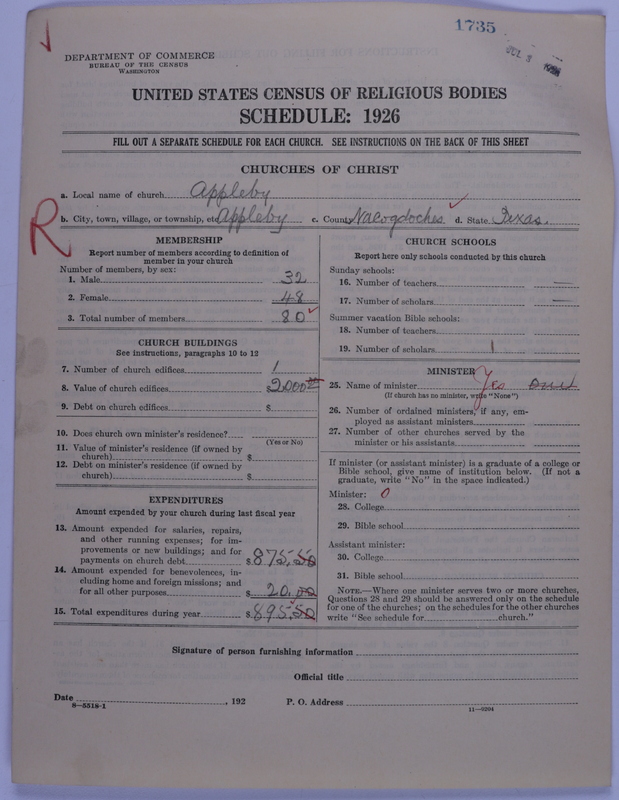 1735
DEPARTMENT OF COMMERCE
BUREAU OF THE CENSUS
WASHINGTON
UNITED STATES CENSUS OF RELIGIOUS BODIES
SCHEDULE: 1926
FILL OUT A SEPARATE SCHEDULE FOR EACH CHURCH. SEE INSTRUCTIONS ON THE BACK OF THIS SHEET
CHURCHES OF CHRIST
a. Local name of church Appleby
R
b. City, town, village, or township, etc. Appleby c. County Nacogdoches d. State Texas.
MEMBERSHIP
Report number of members according to definition of
member in your church
Number of members, by sex:
1. Male 32
2. Female 48
3. Total number of members 80
CHURCH BUILDINGS
See instructions, paragraphs 10 to 12
7. Number of church edifices 1
8. Value of church edifices $2000
9. Debt on church edifices $
10. Does church own minister's residence?
(Yes or No)
11. Value of minister's residence (if owned by
church) $
12. Debt on minister's residence (if owned by
church) $
EXPENDITURES
Amount expended by your church during last fiscal year
13. Amount expended for salaries, repairs,
and other running expenses; for im-
provements or new buildings; and for
payments on church debt $875.50
14. Amount expended for benevolences, in-
cluding home and foreign missions; and
for all other purposes $20.00
15. Total expenditures during year $895.50
CHURCH SCHOOLS
Report here only schools conducted by this church
Sunday schools:
16. Number of teachers
17. Number of scholars
Summer vacation Bible schools:
18. Number of teachers
19. Number of scholars 1
MINISTER
25. Name of minister Yes
(If church has no minister, write "None")
26. Number of ordained ministers, if any, em-
ployed as assistant ministers
27. Number of other churches served by the
minister or his assistants
If minister (or assistant minister) is a graduate of a college or
Bible school, give name of institution below. (If not a
graduate, write "No" in the space indicated.)
Minister: 0
28. College
29. Bible school
Assistant minister:
30. College
31. Bible school
NOTE.—Where one minister serves two or more churches,
Questions 28 and 29 should be answered only on the schedule
for one of the churches; on the schedules for the other churches
write "See schedule for church."
Signature of person furnishing information
Official title
Date , 192 P. O. Address
8—5518-1
11—9204